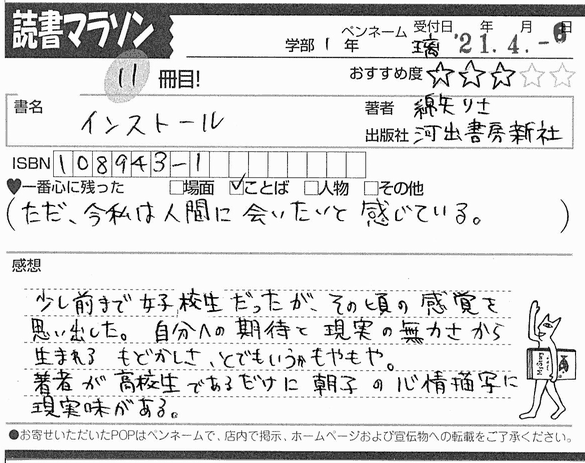 読書マラソン
学部 1 年
ペンネーム 璃
受付日 年 月 日
'21.4.-6
11 冊目!
おすすめ度 ★★★☆☆
書名 インストール
著者 綿矢りさ
出版社 河出書房新社
ISBN 108943-1
♥一番心に残った □場面 ☑ことば □人物 □その他
(ただ、今私は人間に会いたいと感じている。)
感想
少し前まで女子校生だったが、その頃の感覚を
思い出した。自分への期待と現実の無力さから
生まれる もどかしさ、とでもいうかもやもや。
著者が高校生であるだけに朝子の心情描写に
現実味がある。
Mystery
●お寄せいただいたPOPはペンネームで、店内で掲示、ホームページおよび宣伝物への転載をご了承ください。